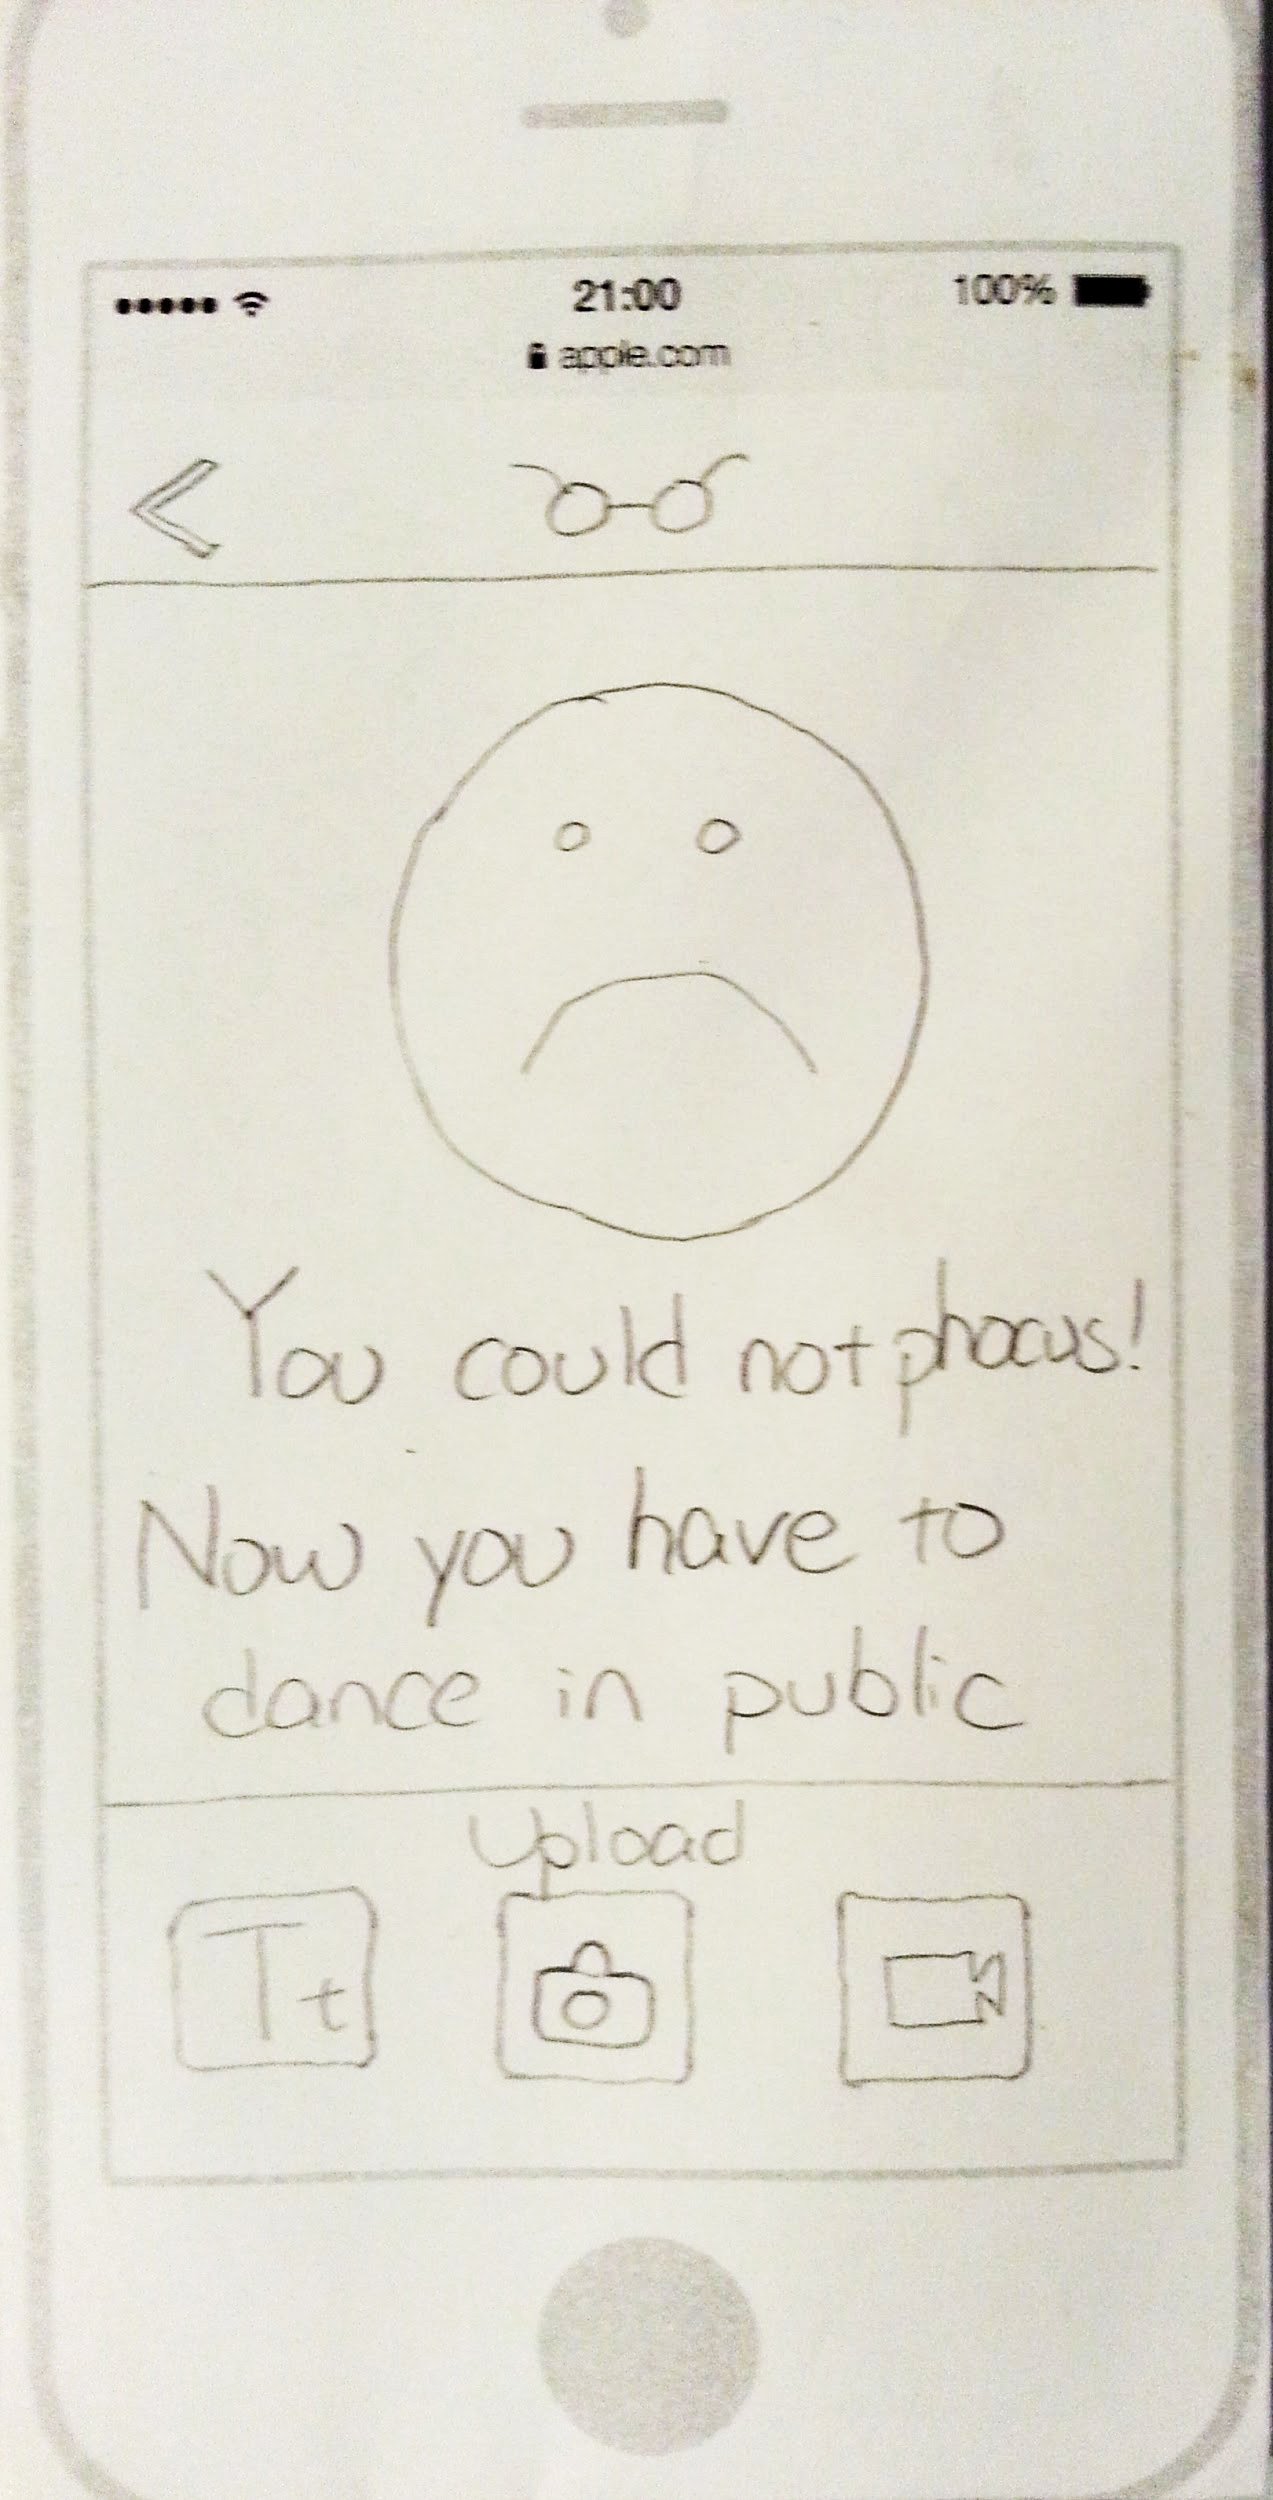 21:00
100%
apple.com
You could not phocus!
Now you have to
dance in public
Upload
Tt